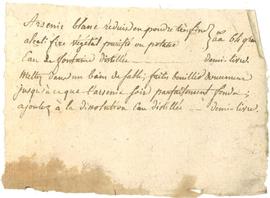 Arsenic blanc réduit en poudre très fine } aa 64 gra
alcali fixe végétal purifié ou potasse
Eau de fontaine distillée — demi-livre.
Mettez dans un bain de sable; faites bouillir doucement
jusqu'à ce que l'arsenic soit parfaitement fondu;
ajoutez à la dissolution Eau distillée — demi-livre.